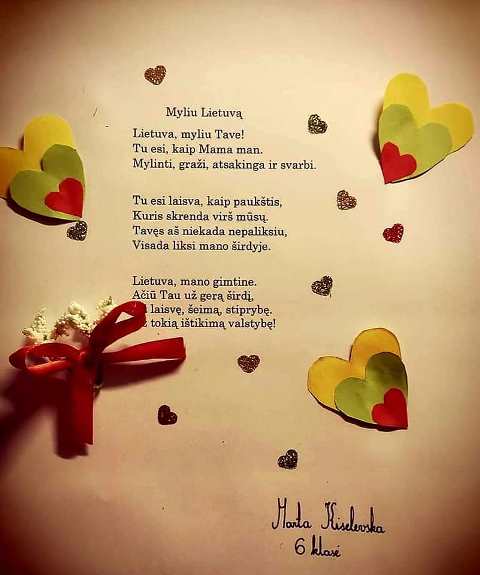 Myliu Lietuvą
Lietuva, myliu Tave!
Tu esi, kaip Mama man.
Mylinti, graži, atsakinga ir svarbi.
Tu esi laisva, kaip paukštis,
Kuris skrenda virš mūsų.
Tavęs aš niekada nepaliksiu,
Visada liksi mano širdyje.
Lietuva, mano gimtine.
Ačiū Tau už gerą širdį,
laisvę, šeimą, stiprybę.
tokią ištikimą valstybę!
Marta Kiselevska
6 klasė